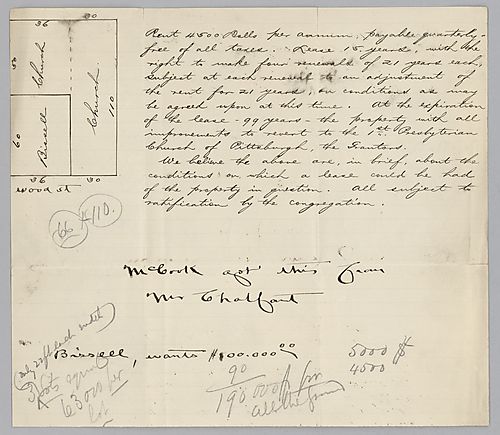 36
30
50
Church
Church
110
60
Bissell
36
30
Wood St
Rent 4500 Dolls per annum, payable quarterly,
free of all taxes. Lease 15 years, with the
right to make four renewals of 21 years each,
Subject at each renewal to an adjustment of
the rent for 21 years, on conditions as may
be agreed upon at this time. At the expiration
of the lease - 99 years - the property, with all
improvements to revert to the 1st Presbyterian
Church of Pittsburgh, the Grantors.
We believe the above are, in brief, about the
conditions on which a lease could be had
of the property in question. All subject to
ratification by the congregation.
66 x 110.
McCook got this from
Mr Chalfant
Bissell, wants $100.000 00
90
190 000 for
all the
5000
4500
3 lots equal
63 000 per
lot